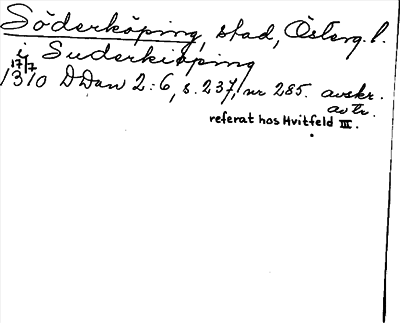 Söderköping, stad, Österg. l.
i Suderkiöping
17/7
1310 DDan 2:6, s. 237, nr 285. avskr.
avtr.
referat hos Hvitfeld III.